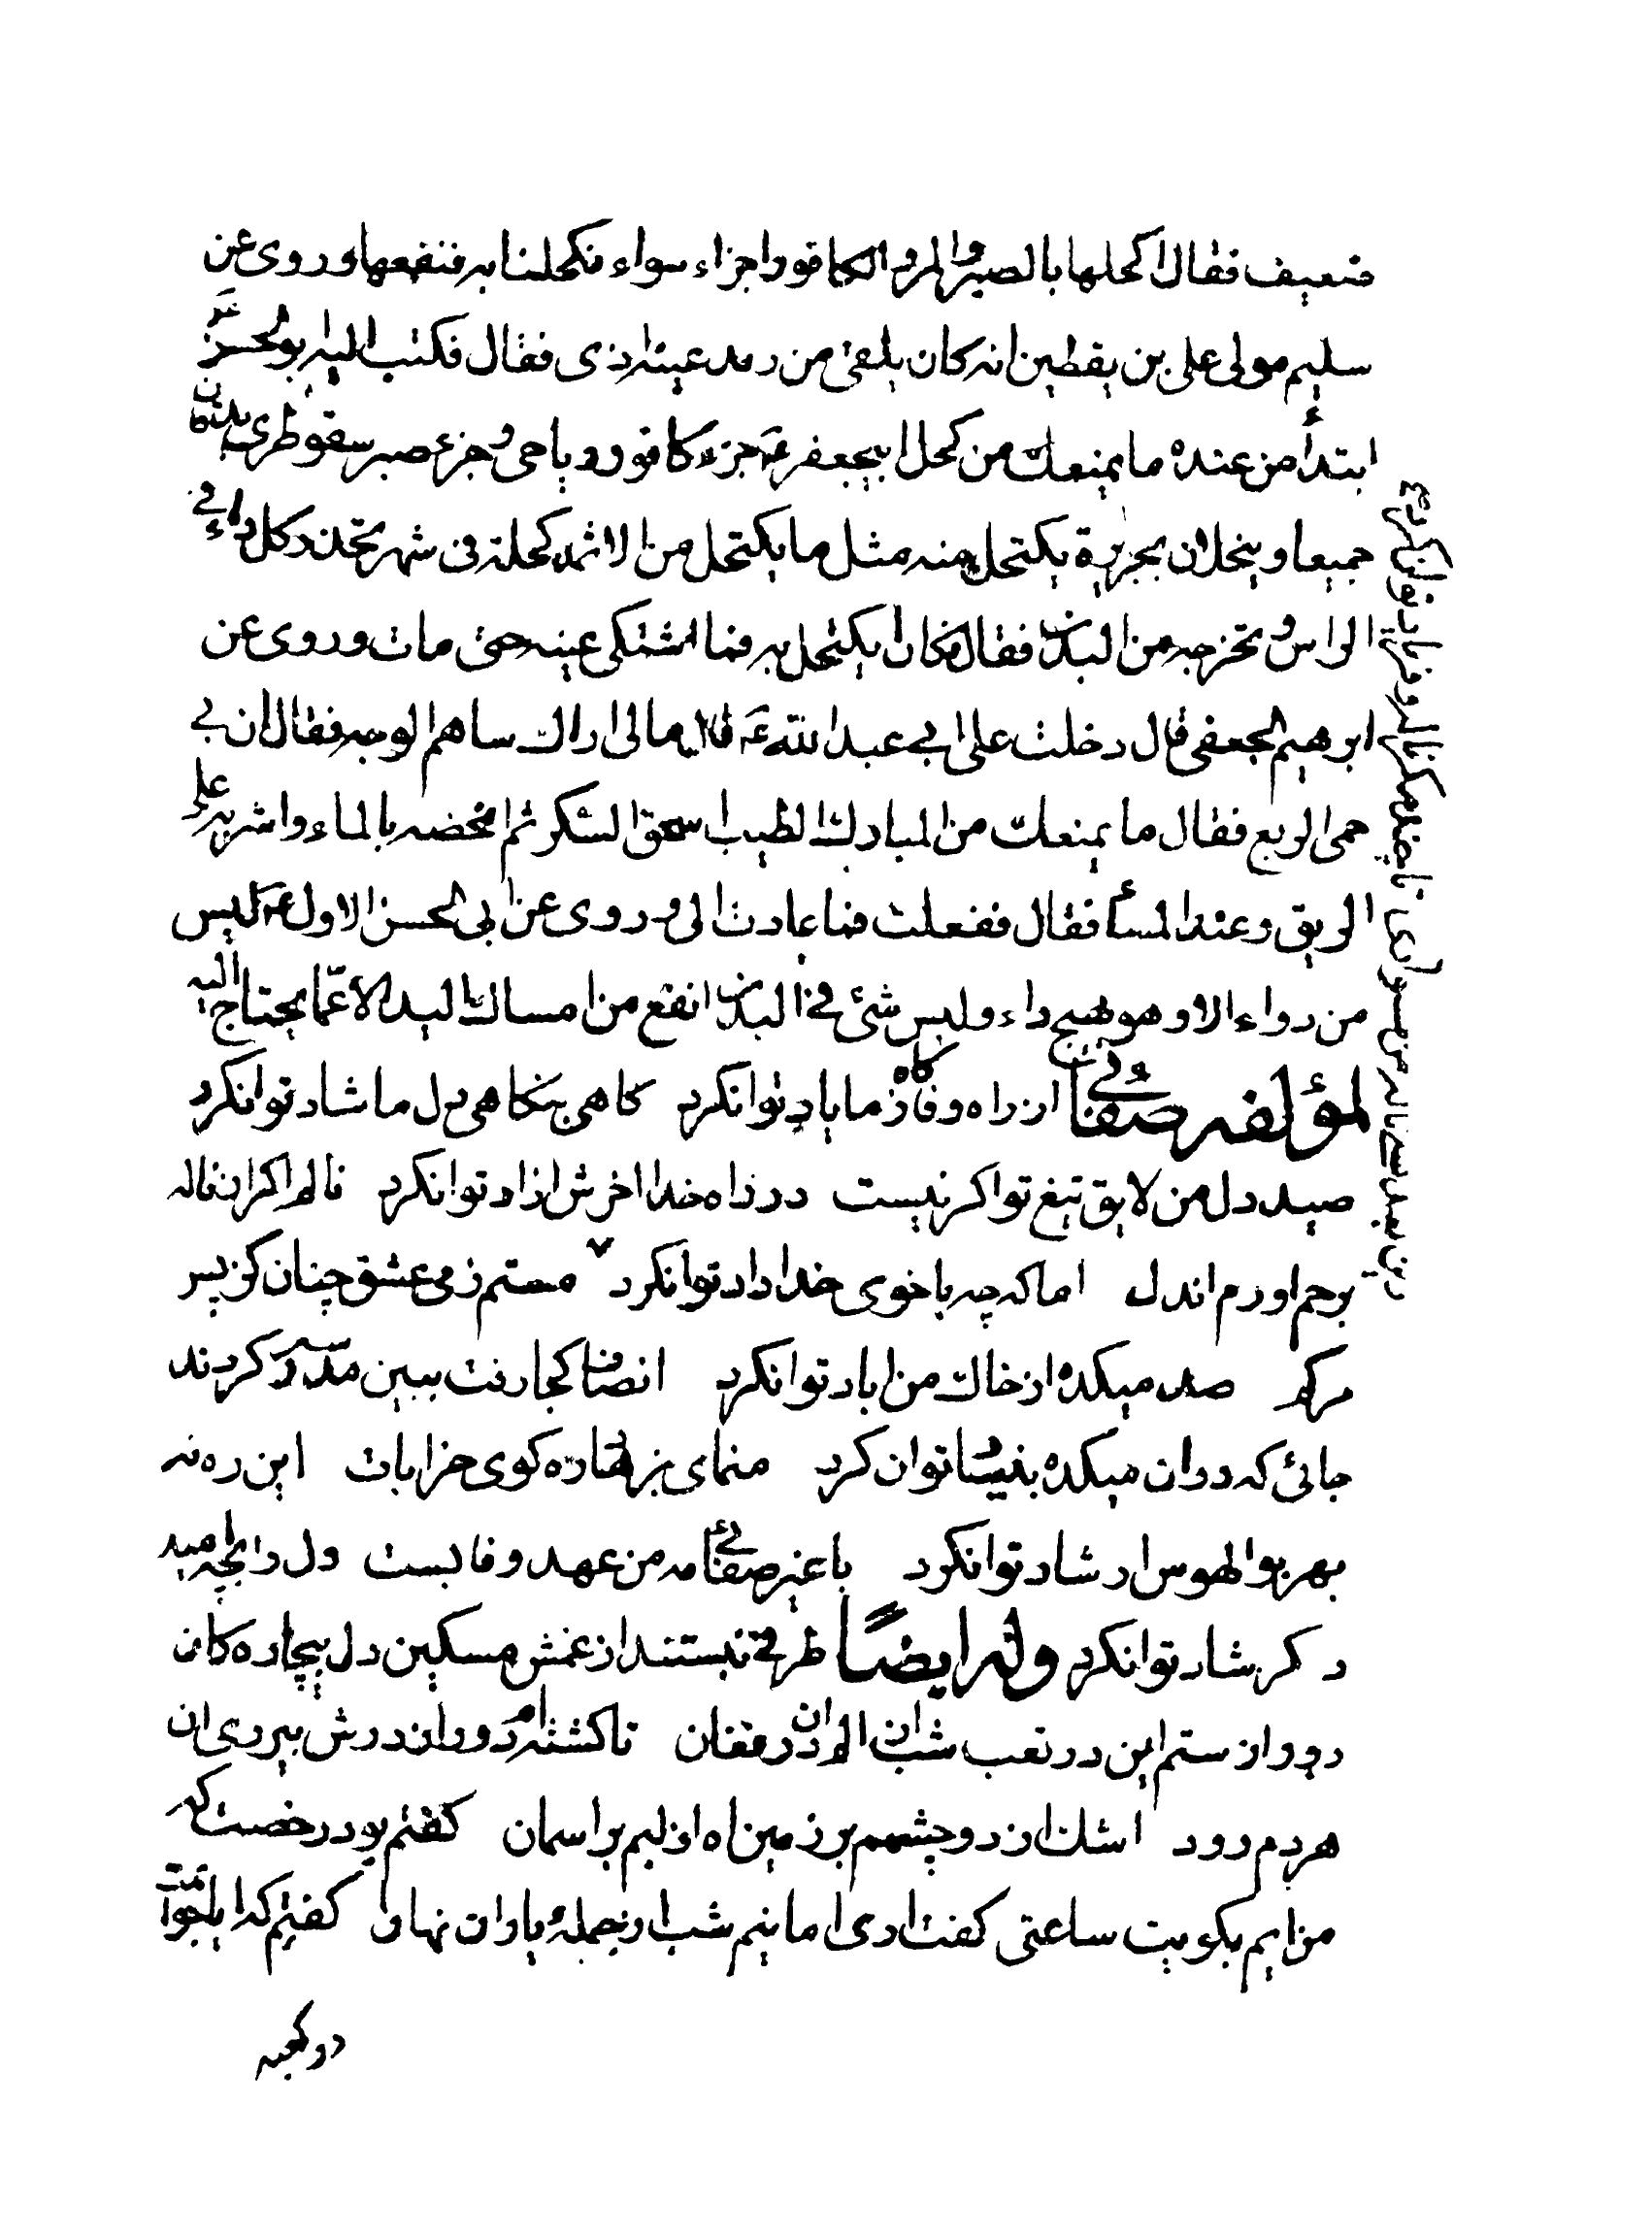 ضعیف فقال اکحلها بالصبر والمر والکافور اجزاء سواء فکحلنا به فنفعها وروی عن
سلیم مولی علی بن یقطین انه کان یلقی من رمد عینه اذی فقال فکتب الیه ابو الحسن
ابتداء من عنده ما یمنعک من کحل ابیجعفر جزء کافور ریاحی وجزء صبر سقوطری یدقان
جمیعا وینخلان بحریرة یکتحل منه مثل ما یکتحل من الاثمد کحلة فی شهر تحدر کل داء فی
الراس وتخرجه من البدن فقال فکان یکتحل به فما اشتکی عینه حتی مات وروی عن
ابرهیم الجعفی قال دخلت علی ابی عبد الله قال مالی اراک ساهم الوجه فقال ان بی
حمی الربع فقال ما یمنعک من المبارک الطیب اسحق السکر ثم امخضه بالماء واشربه علی
الریق وعند المساء فقال ففعلت فما عادت الی وروی عن ابی الحسن الاول لیس
من دواء الا وهو یهیج داء ولیس شئ فی البدن انفع من امساک الید الا عما یحتاج الیه
لمؤلفه صفائی از راه وفا گاه ز ما یاد توانکرد گاهی بنگاهی دل ما شاد توانکرد
صید دل من لایق تیغ تو اگر نیست در راه خدا اخرش ازاد توانکرد نالم اگر از ناله
برحم اورم اندل اما که چه با خوی خدا داد توانکرد مستم ز می عشق چنان کز پس
مرگم صد میکده از خاک من اباد توانکرد انصاف کجا رفت ببین مدرسه کردند
جائی که در ان میکده بنیاد توان کرد منمای بزهاد ره کوی خرابات این ره نه
بهر بوالهوس ارشاد توانکرد با غیر صفائی مه من عهد وفا بست دل را بچه امید
دگر شاد توانکرد وله ایضا طرفی نبستند از غمش مسکین دل بیچاره کان
در روز ستم این در تعب شب ان الم ان در فغان تا کشته ام دور از درش بیروی ان
هر دم رود اشک از دو چشمم بر زمین اه از لبم بر اسمان گفتم بود رخصت که
من ایم بکویت ساعتی گفت اری اما نیم شب از جمله یاران نهان گفتم که ایا بخوابت
در کعبه